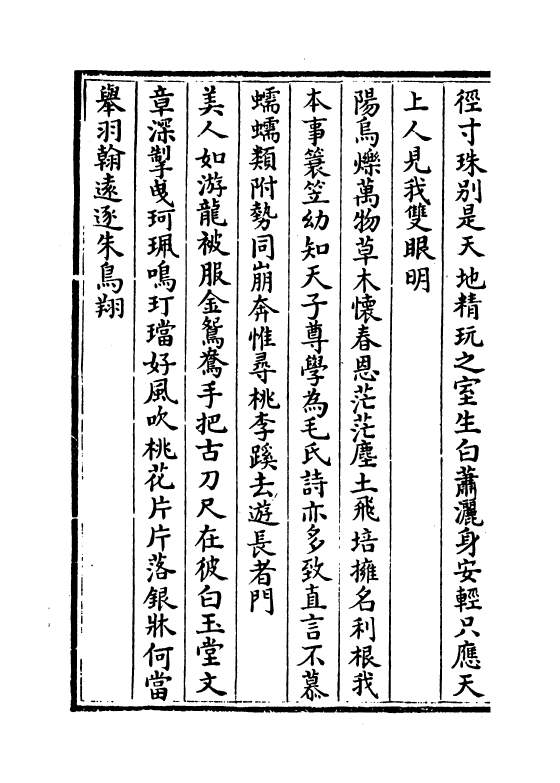 徑寸珠别是天地精玩之室生白蕭灑身安輕只應天
上人見我雙眼明
陽烏爍萬物草木懷春恩茫茫塵土飛培擁名利根我
本事簑笠幼知天子尊學為毛氏詩亦多致直言不慕
蠕蠕類附勢同崩奔惟尋桃李蹊去遊長者門
美人如游龍被服金鴛鴦手把古刀尺在彼白玉堂文
章深掣曳珂珮鳴玎璫好風吹桃花片片落銀牀何當
舉羽翰遠逐朱鳥翔